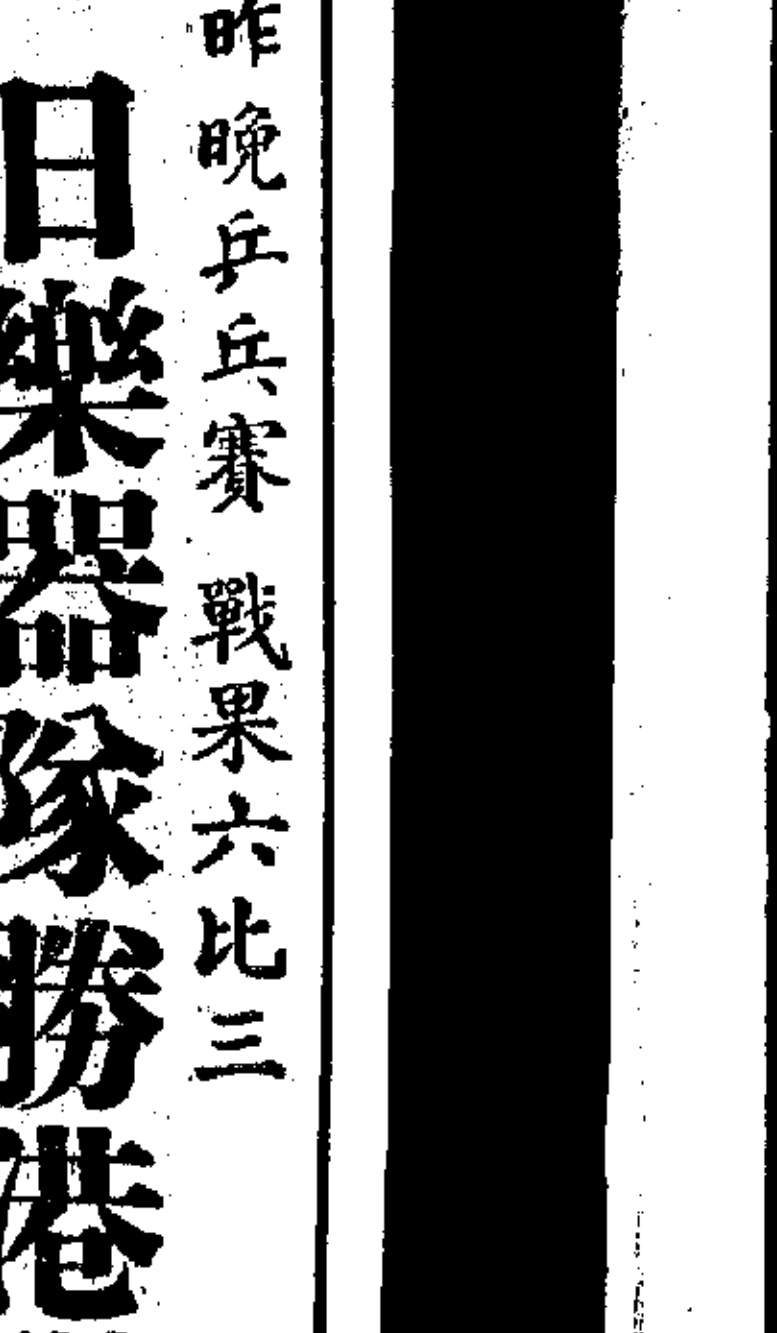 昨晚乒乓賽 戰果六比三
日樂器隊勝港